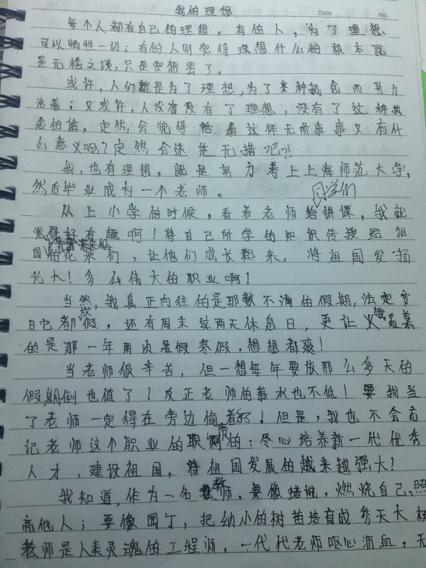 我的理想
Date
No.
每个人都有自己的理想,有的人,为了理想,
可以牺牲一切;有的人则觉得理想什么的根本就
是无稽之谈,只是空想罢了。
或许,人们就是为了理想,为了某种执念而努力
活着;又或许,人没有没有了理想,没有了这种执
念的话,定然会觉得活着这样无所事事又有什
么意义呢?定然会迷先无措吧?!
我,也有理想,就是努力考上上海师范大学,
然后毕业成为一个老师。
同学们
从上小学的时候,看着老师给讲课,我就
觉得好有趣啊!将自己所学的知识传授给祖
国的花朵们,让他们成长起来,将祖国发扬
光大!多么伟大的职业啊!
当然,我真正向往的是那数不清的假期,法定节
日它都放假,还有周末这两天休息日,更让人羡慕
的是那一年两次暑假寒假,想想都爽!
当老师很辛苦,但一想每年要放那么多天的
假期倒也值了!反正老师的薪水也不低!要我当
了老师一定得在旁边偷着乐!但是,我也不会忘
记老师这个职业的职责的:尽心培养新一代优秀
人才,建设祖国,将祖国发展的越来越强大!
我知道,作为一名教师,要像蜡烛,燃烧自己,照
亮他人;要像园丁,把幼小的树苗培育成参天大树
老师是人类灵魂的工程师,一代代老师呕心沥血,无